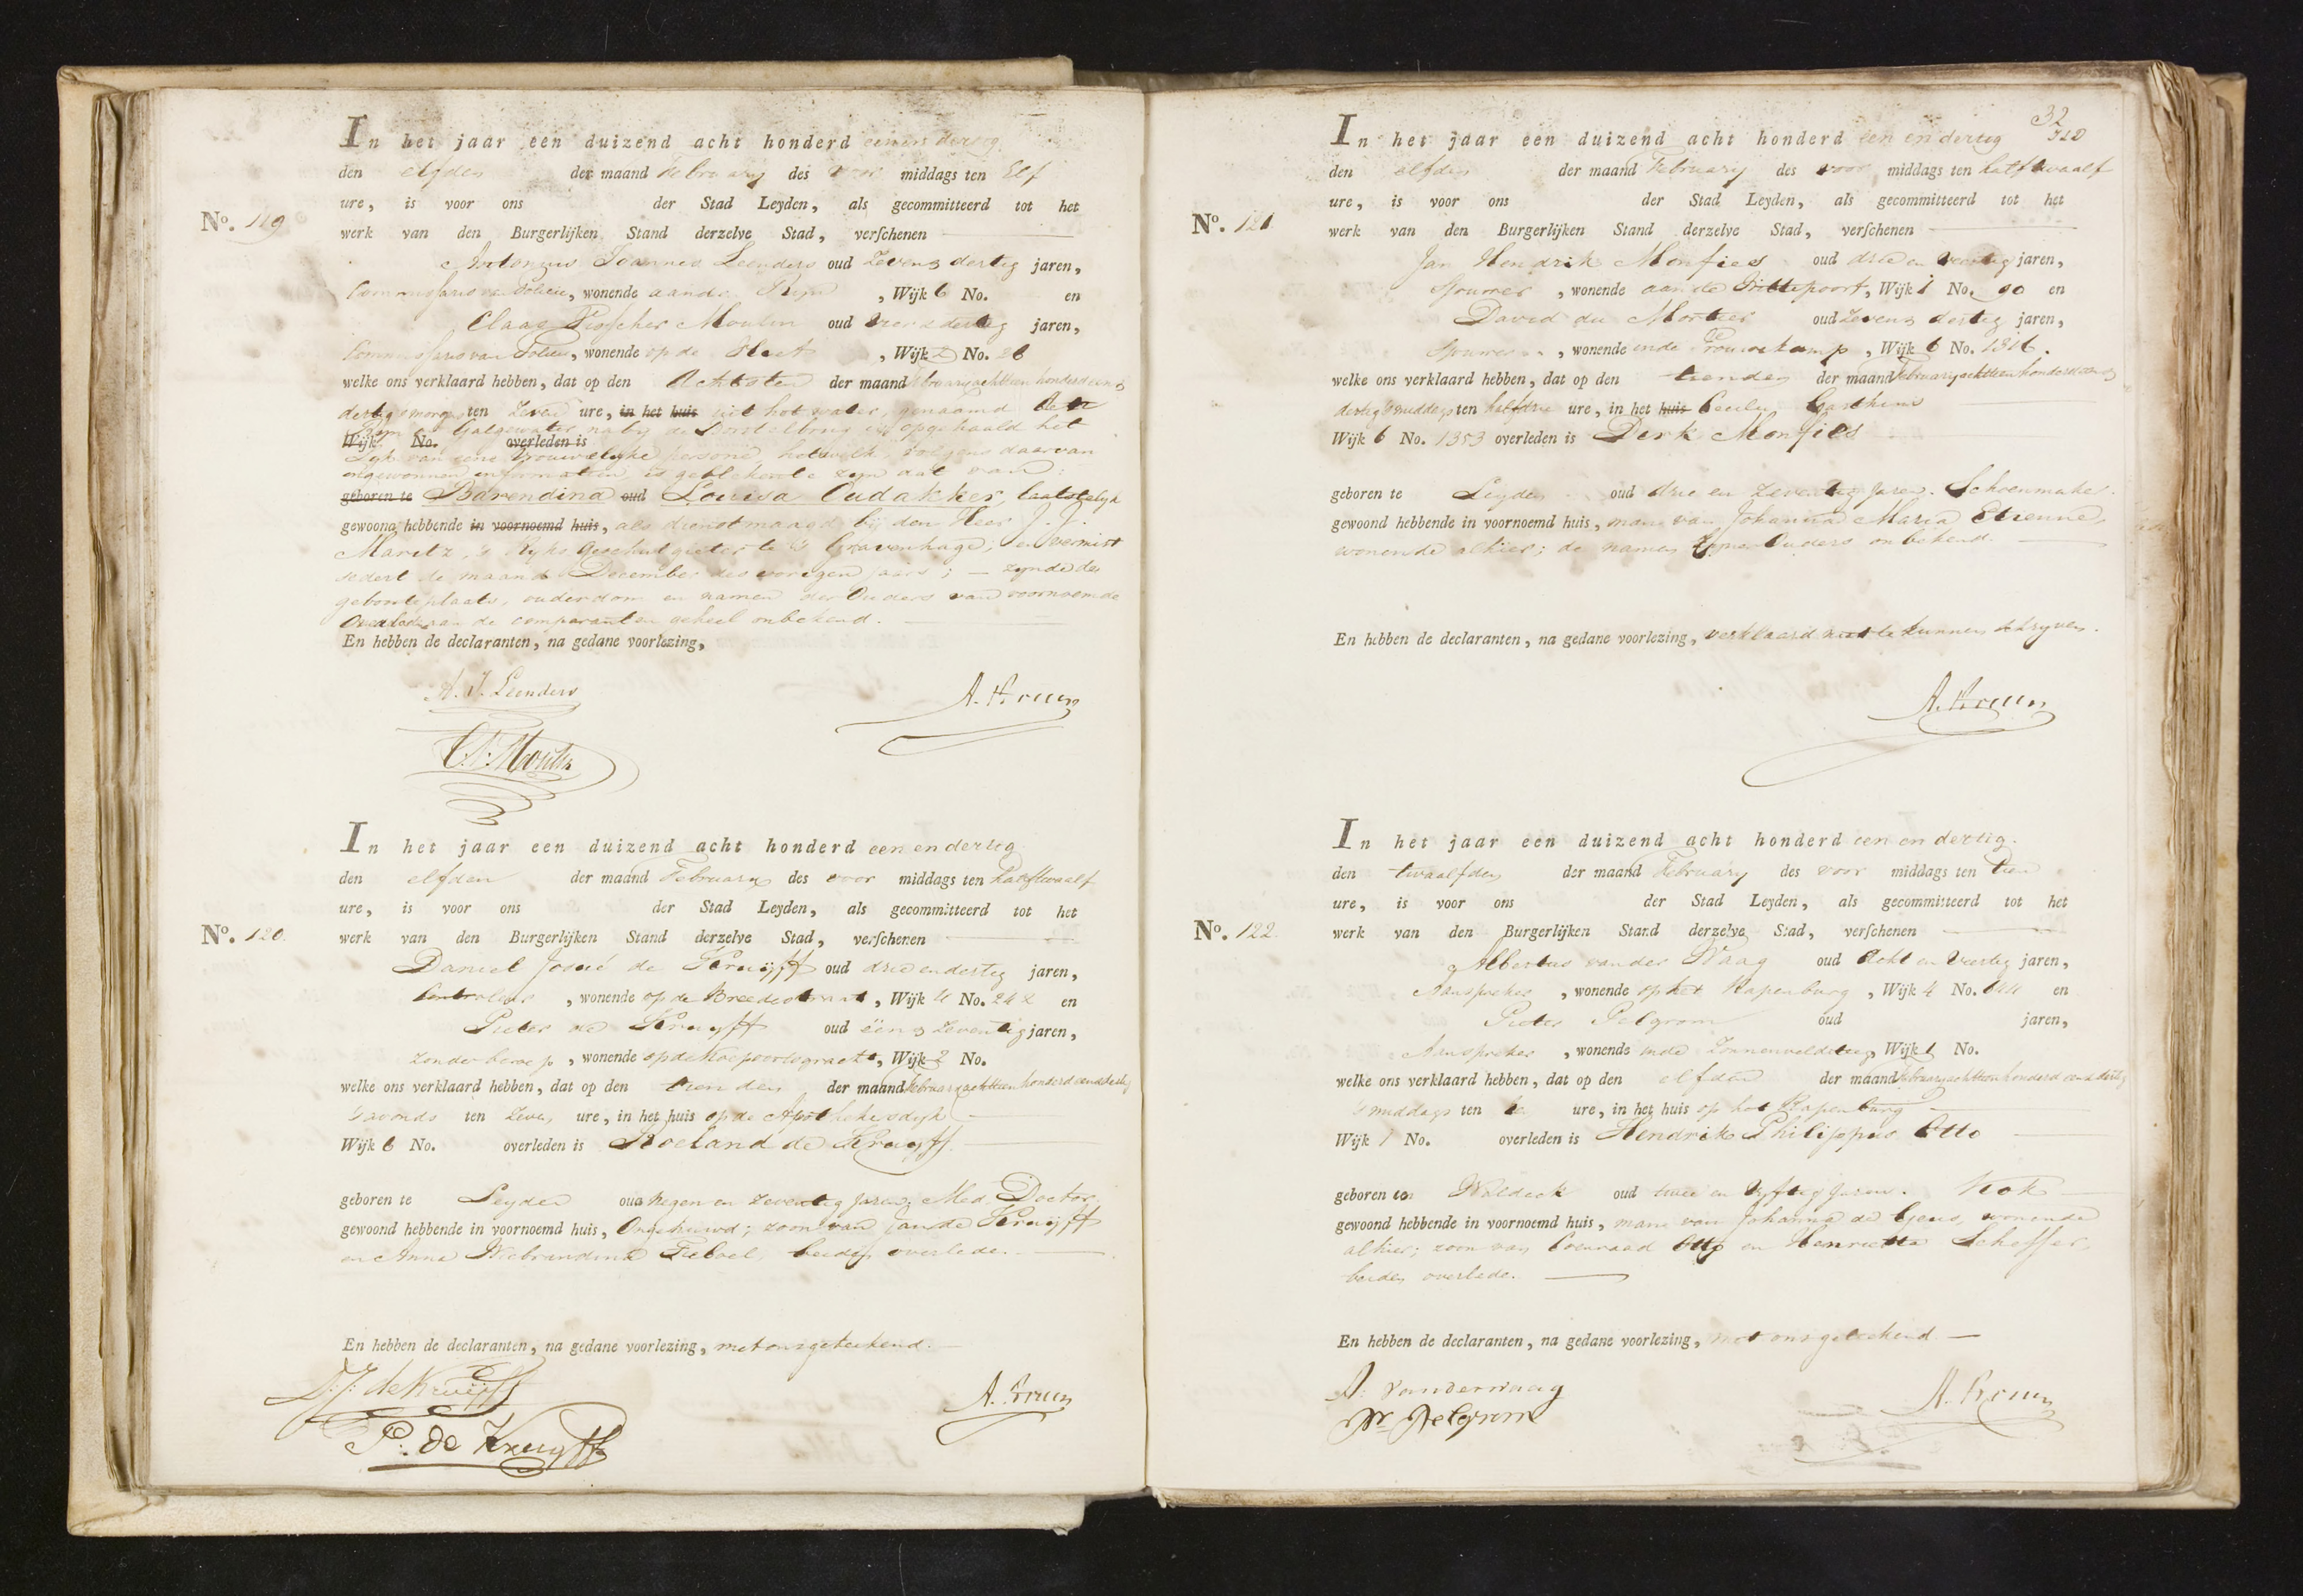 In het jaar een duizend acht honderd een en dertig
den elfden der maand February des voor middags ten Elf
ure, is voor ons der Stad Leyden, als gecommitteerd tot het
No. 119
werk van den Burgerlijken Stand derzelve Stad, verschenen
Antonius Joannes Leenders oud Zeven & dertig jaren,
Commissaris van Policie, wonende aan de Rijn, Wijk 6 No. en
Claas Moulin oud vier & dertig jaren,
Commissaris van Policie, wonende op de, Wijk 2 No. 26
welke ons verklaard hebben, dat op den Achtsten der maand February achttien honderd een &
dertig smorgens ten Zeven ure, in het huis uit het water, genaamd de
Rijn of Galgewater, naby de is opgehaald het
Wijk No. overleden is
Lyk van eene Vrouwelyke persoon hetwelk, volgens daarvan
ingewonnen informatien is gebleken te zyn dat van:
geboren te Barendina oud Louisa Oudakker, laatstelyk
gewoond hebbende in voornoemd huis, als dienstmaagd by den Heer J. J.
Maritz, 's Ryks Geschutgieter te 's Gravenhage; en vermist
sedert de maand December des vorigen jaars; — zynde de
geboorteplaats, ouderdom en namen der Ouders van voornoemde
Overledene aan de comparanten geheel onbekend.
En hebben de declaranten, na gedane voorlezing,
A. J. Leenders
A. Kruun
In het jaar een duizend acht honderd een en dertig
den elfden der maand February des voor middags ten half twaalf
ure, is voor ons der Stad Leyden, als gecommitteerd tot het
No. 120.
werk van den Burgerlijken Stand derzelve Stad, verschenen
Daniel Josué de Kruyff oud drie en dertig jaren,
Controleur, wonende op de Breedestraat, Wijk 4 No. 242 en
Pieter de Kruyff oud één & zeventig jaren,
zonder beroep, wonende op de Hoepoortsgracht, Wijk 2 No.
welke ons verklaard hebben, dat op den tienden der maand February achttien honderd een & dertig
's avonds ten Zeven ure, in het huis op de Apothekersdyk
Wijk 6 No. overleden is Roeland de Kruyff
geboren te Leyden oud Negen en zeventig Jaren, Med. Doctor,
gewoond hebbende in voornoemd huis, Ongehuwd; zoon van Jan de Kruyff
en Anna Wiebrandina beiden overleden.
En hebben de declaranten, na gedane voorlezing, met ons geteekend.
D: J: de Kruyff
P: de Kruyff
A. Kruun
32
In het jaar een duizend acht honderd een en dertig
den elfden der maand February des voor middags ten half twaalf
ure, is voor ons der Stad Leyden, als gecommitteerd tot het
No. 121
werk van den Burgerlijken Stand derzelve Stad, verschenen
Jan Hendrik Monfies oud drie en veertig jaren,
Spinner, wonende aan de Wittepoort, Wijk 1 No. 90 en
David du Mortier oud Zeven & dertig jaren,
Spinner, wonende in de Vrouwekamp, Wijk 6 No. 1316.
welke ons verklaard hebben, dat op den tienden der maand February achttien honderd een &
dertig 's middags ten half drie ure, in het huis Cecilia Gasthuis
Wijk 6 No. 1353 overleden is Derk Monfils
geboren te Leyden oud drie en zeventig Jaren. Schoenmaker.
gewoond hebbende in voornoemd huis, man van Johanna Maria Etienne,
wonende alhier; de namen zyner Ouders onbekend.
En hebben de declaranten, na gedane voorlezing, verklaard niet te kunnen schryven.
A. Kruun
In het jaar een duizend acht honderd een en dertig.
den twaalfden der maand February des voor middags ten tien
ure, is voor ons der Stad Leyden, als gecommitteerd tot het
No. 122.
werk van den Burgerlijken Stand derzelve Stad, verschenen
Albertus van der Waag oud Acht en Veertig jaren,
Aanspreker, wonende op het Rapenburg, Wijk 4 No. en
Pieter Pelgrom oud jaren,
Aanspreker, wonende in de Zonneveldsteeg, Wijk 1 No.
welke ons verklaard hebben, dat op den elfden der maand February achttien honderd een & dertig
's middags ten ure, in het huis op het Rapenburg
Wijk 1 No. overleden is Hendrik Philippus Otto
geboren te Waldeck oud twee en vyftig Jaren. Kok
gewoond hebbende in voornoemd huis, man van Johanna de Geus, wonende
alhier; zoon van Coenraad Otto en Henrietta Scheffer,
beiden overleden.
En hebben de declaranten, na gedane voorlezing, met ons geteekend
A: vanderwaag
Pr Pelgrom
A. Kruun